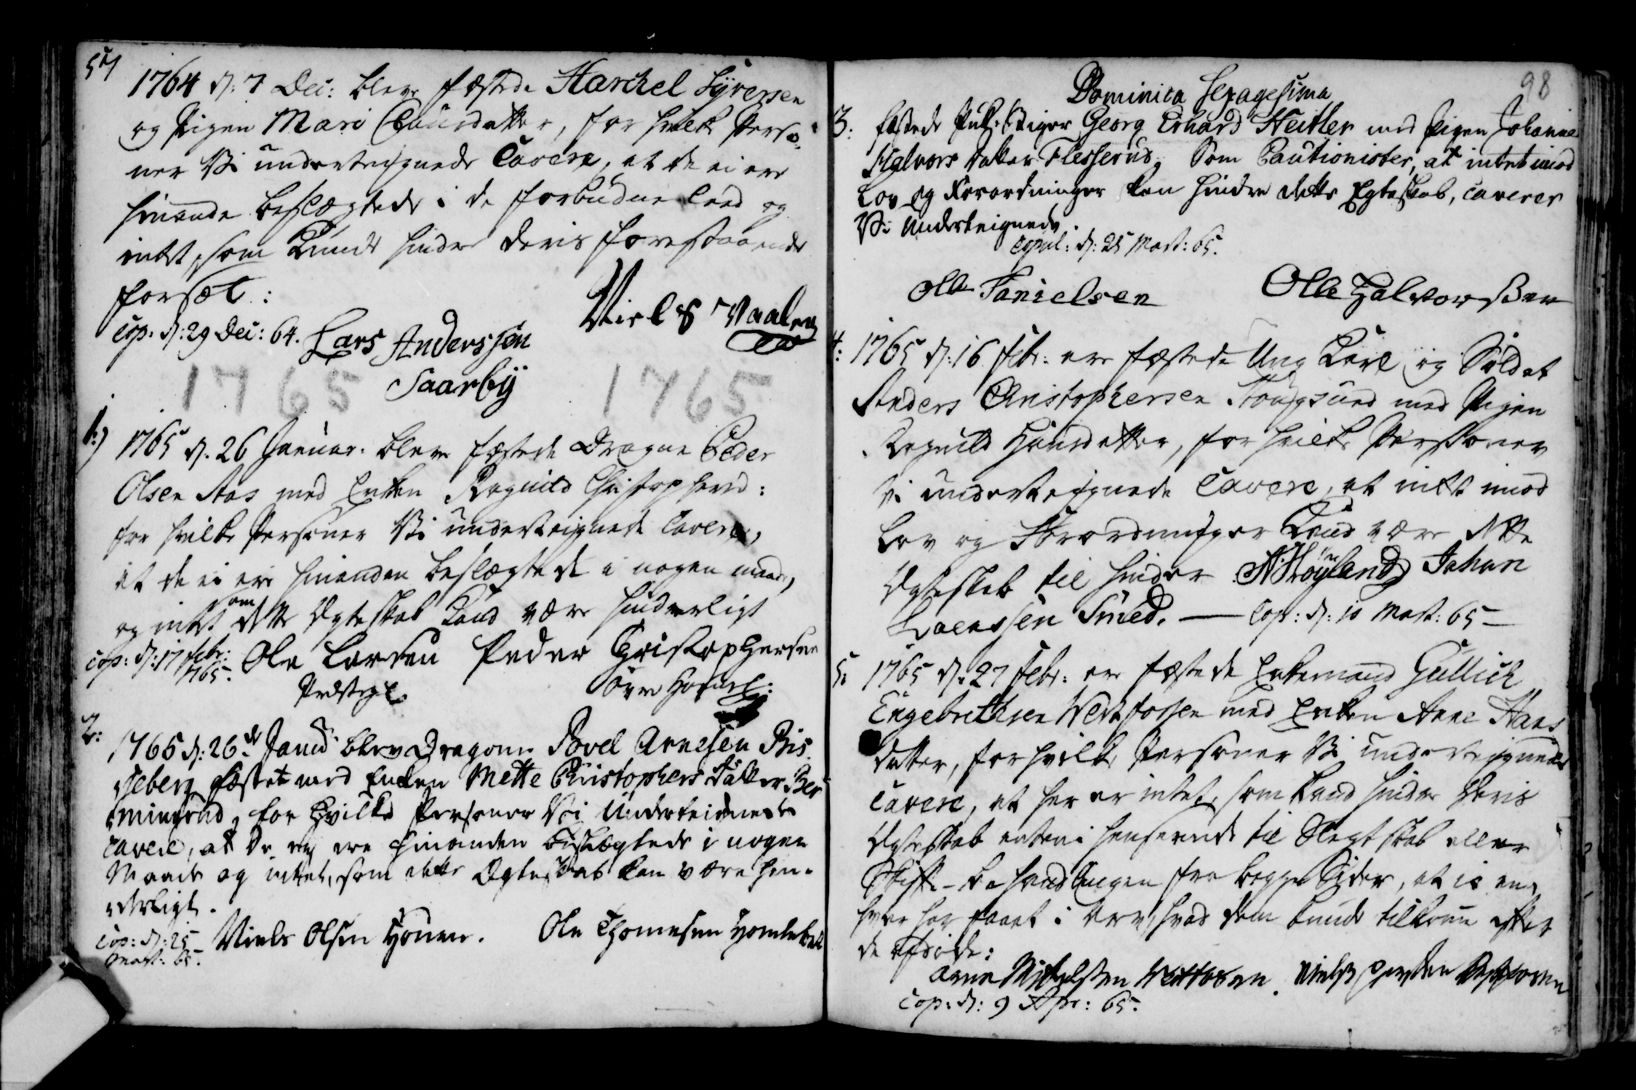 57
1764 d: 7 Dec: blev fæstede Harchel Syversen
og Pigen Mari Clausdatter, for hvilke Perso-
ner Vi undertegnede Cavere, at de ei ere
hinande beslægtede i de forbudne Leed og
intet, som Kunde hindre deris forestaaende
forsæt:
Cop. d: 29 Dec: 64. Lars Anderssen
Saarby
Niels Waaler
1765 1765
1:) 1765 d. 26 Januar. blev fæstede Dragun Peder
Olsen Aas med Enken Ragnild Christophersd:
for hvilke Personer Vi underteignede Cavere,
at de ei ere hinanden beslægtede i nogen maade,
og intet som dette Egteskab Kand være hinderligt
cop: d: 17 Febr: 1765. Ole Larsen Peder Christophersen
2: 1765 d: 26de Janu: blev Dragon Povel Arnesen Bis-
seberg fæstet med Enken Mette Christophers Datter Ber-
mingrud, for Hvilke Personer Vi Underteignede
cavere, at De ey ere hinanden beslægtede i nogen
Maade og intet, som dette Egteskab kan være hin-
derligt.
Cop: d: 25 Mart: 65. Niels Olsen Honen. Ole Thomesen
98
Dominica Sexagesima
3: fæstede Georg Erhard Heitler med Pigen Johanne
Halvors Datter Flesserud, Som Cautionister, at intet imod
Lov og Forordninger kan hindre dette Egteskab, caverer
Vi Underteignede.
Copul: d: 25 Mart: 65.
Olle Danielsen Olle Halvorssen
4: 1765 d: 16 Febr: ere fæstede Ung Karl og Soldat
Anders Christophersen Hougsund med Pigen
Ragnild Hansdatter, for hvilke Personer
vi undertegnede Cavere, at intet imod
Lov og Forordninger Kand være dette
Egteskab til hinder. A Høyland Johan
Laerssen Smed. — Cop: d: 10 Mart: 65 —
5: 1765 d: 27 Febr: ere fæstede Enkemand Gullich
Engebrethsen Westfossen med Enken Anne Hans
datter, for hvilke Personer Vi undertegnede
Cavere, at her er intet, som kand hindre deris
Egteskab enten i henseende til Slegtskab eller
Skifte-behandlingen fra begge Sider, at io en
hver har faaet i Arv, hvad dem kunde tilkomme efter
de afdøde:
Arne
Cop: d: 9 Apr: 65.